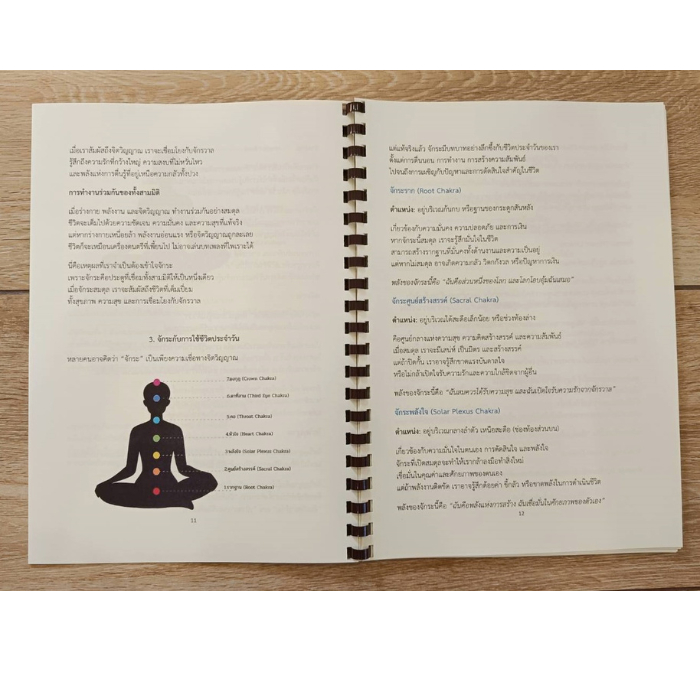 เมื่อเราสัมผัสถึงจิตวิญญาณ เราจะเชื่อมโยงกับจักรวาล
รู้สึกถึงความรักที่กว้างใหญ่ ความสงบที่ไม่หวั่นไหว
และพลังแห่งการตื่นรู้ที่อยู่เหนือความกลัวทั้งปวง
การทำงานร่วมกันของทั้งสามมิติ
เมื่อร่างกาย พลังงาน และจิตวิญญาณ ทำงานร่วมกันอย่างสมดุล
ชีวิตจะเต็มไปด้วยความชัดเจน ความมั่นคง และความสุขที่แท้จริง
แต่หากร่างกายเหนื่อยล้า พลังงานอ่อนแรง หรือจิตวิญญาณถูกละเลย
ชีวิตก็จะเหมือนเครื่องดนตรีที่เพี้ยนไป ไม่อาจเล่นบทเพลงที่ไพเราะได้
นี่คือเหตุผลที่เราจำเป็นต้องเข้าใจจักระ
เพราะจักระคือประตูที่เชื่อมทั้งสามมิติให้เป็นหนึ่งเดียว
เมื่อจักระสมดุล เราจะสัมผัสถึงชีวิตที่เต็มเปี่ยม
ทั้งสุขภาพ ความสุข และการเชื่อมโยงกับจักรวาล
3. จักระกับการใช้ชีวิตประจำวัน
หลายคนอาจคิดว่า "จักระ" เป็นเพียงความเชื่อทางจิตวิญญาณ
7.มงกุฎ (Crown Chakra)
6.ตาที่สาม (Third Eye Chakra)
5.คอ (Throat Chakra)
4.หัวใจ (Heart Chakra)
3.พลังใจ (Solar Plexus Chakra)
2.ศูนย์สร้างสรรค์ (Sacral Chakra)
1.รากฐาน (Root Chakra)
11
แต่แท้จริงแล้ว จักระมีบทบาทอย่างลึกซึ้งกับชีวิตประจำวันของเรา
ตั้งแต่การตื่นนอน การทำงาน การสร้างความสัมพันธ์
ไปจนถึงการเผชิญกับปัญหาและการตัดสินใจสำคัญในชีวิต
จักระราก (Root Chakra)
ตำแหน่ง: อยู่บริเวณก้นกบ หรือฐานของกระดูกสันหลัง
เกี่ยวข้องกับความมั่นคง ความปลอดภัย และการเงิน
หากจักระนี้สมดุล เราจะรู้สึกมั่นใจในชีวิต
สามารถสร้างรากฐานที่มั่นคงทั้งด้านงานและความเป็นอยู่
แต่หากไม่สมดุล อาจเกิดความกลัว วิตกกังวล หรือปัญหาการเงิน
พลังของจักระนี้คือ "ฉันคือส่วนหนึ่งของโลก และโลกโอบอุ้มฉันเสมอ"
จักระศูนย์สร้างสรรค์ (Sacral Chakra)
ตำแหน่ง: อยู่บริเวณใต้สะดือเล็กน้อย หรือช่วงท้องล่าง
คือศูนย์กลางแห่งความสุข ความคิดสร้างสรรค์ และความสัมพันธ์
เมื่อสมดุล เราจะมีเสน่ห์ เป็นมิตร และสร้างสรรค์
แต่ถ้าปิดกั้น เราอาจรู้สึกขาดแรงบันดาลใจ
หรือไม่กล้าเปิดใจรับความรักและความใกล้ชิดจากผู้อื่น
พลังของจักระนี้คือ "ฉันสมควรได้รับความสุข และฉันเปิดใจรับความรักจากจักรวาล"
จักระพลังใจ (Solar Plexus Chakra)
ตำแหน่ง: อยู่บริเวณกลางลำตัว เหนือสะดือ (ช่องท้องส่วนบน)
เกี่ยวข้องกับความมั่นใจในตนเอง การตัดสินใจ และพลังใจ
จักระที่เปิดสมดุลจะทำให้เรากล้าลงมือทำสิ่งใหม่
เชื่อมั่นในคุณค่าและศักยภาพของตนเอง
แต่ถ้าพลังงานติดขัด เราอาจรู้สึกด้อยค่า ขี้กลัว หรือขาดพลังในการดำเนินชีวิต
พลังของจักระนี้คือ "ฉันคือพลังแห่งการสร้าง ฉันเชื่อมั่นในศักยภาพของตัวเอง"
12